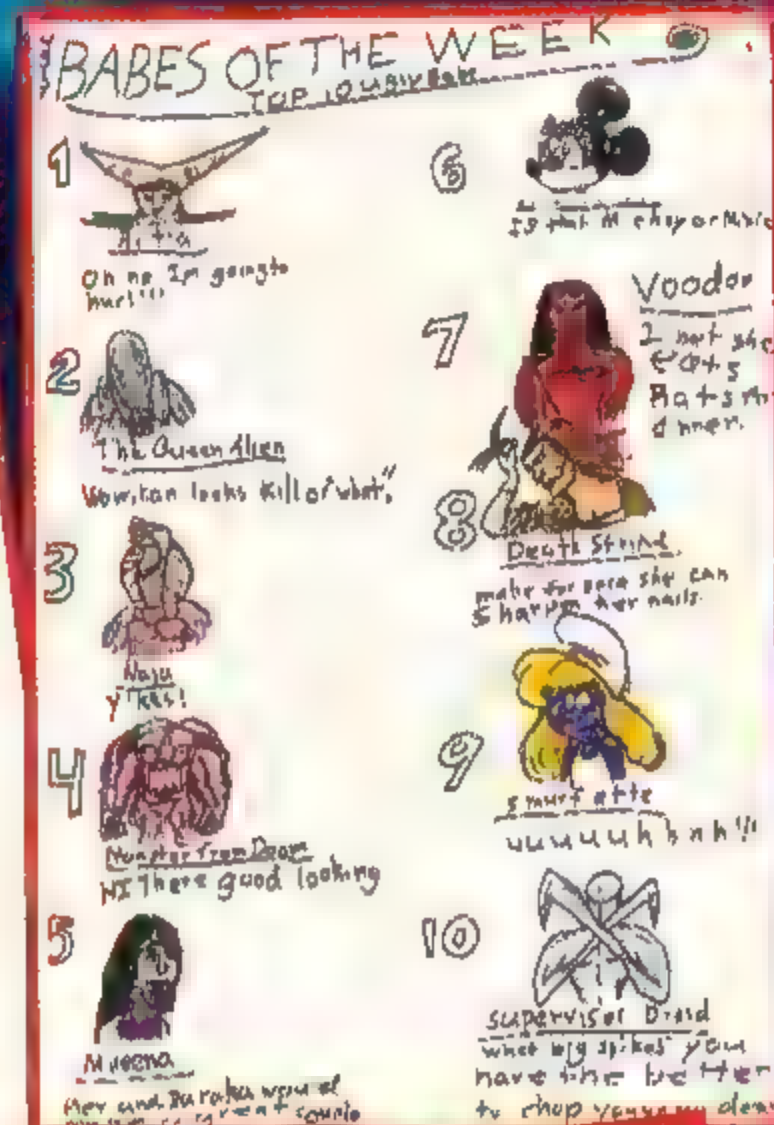 BABES OF THE WEEK
TOP 10
1
Oh no Im going to
hurl!!!
2
The Queen Alien
Wow, kan looks kill or what!!
3
Naja
Y'kes!
4
Monster From Doom
HI There good looking
5
Mileena
Her and Baraka would
great couple
6
Is that M or
7
Voodoo
I she
Eats
Rats
dinner.
8
Death Strike
make sure she can
sharpen her nails.
9
smurfette
uuuuuhhnh!!!
10
Supervisor Droid
what big spikes you
have the better
to chop